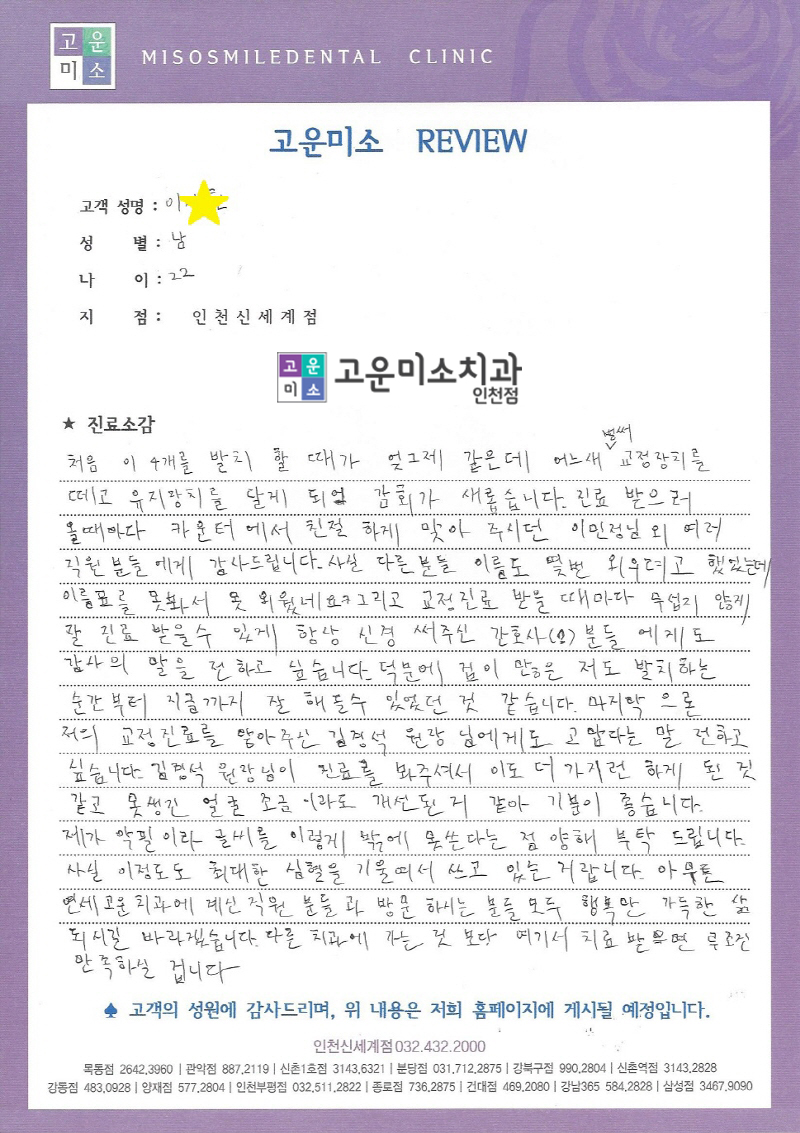 고운
미소
MISOSMILEDENTAL CLINIC
고운미소 REVIEW
고객 성명 : 이
성 별 : 남
나 이 : 22
지 점 : 인천신세계점
고운
미소
고운미소치과
인천점
★ 진료소감
벌써
처음 이 4개를 발치 할 때가 엊그제 같은데 어느새 교정장치를
떼고 유지장치를 달게 되어 감회가 새롭습니다. 진료 받으러
올때마다 카운터에서 친절하게 맞아 주시던 이민정님 외 여러
직원분들에게 감사드립니다. 사실 다른분들 이름도 몇번 외우려고 했었는데
이름표를 못봐서 못 외웠네요ㅋ 그리고 교정진료 받을 때마다 무섭지 않게
잘 진료 받을수 있게 항상 신경 써주신 간호사(?)분들 에게도
감사의 말을 전하고 싶습니다. 덕분에 겁이 많은 저도 발치하는
순간부터 지금까지 잘 해올수 있었던 것 같습니다. 마지막 으론
저의 교정진료를 맡아주신 김경석 원장님에게도 고맙다는 말 전하고
싶습니다. 김경석 원장님이 진료를 봐주셔서 이도 더 가지런 하게 된 것
같고 못생긴 얼굴 조금 이라도 개선된 거 같아 기분이 좋습니다.
제가 악필이라 글씨를 이렇게 밖에 못쓴다는 점 양해 부탁 드립니다.
사실 이정도도 최대한 심혈을 기울여서 쓰고 있는 거랍니다. 아무튼
연세고운치과에 계신 직원 분들과 방문 하시는 분들 모두 행복만 가득한 삶
되시길 바라겠습니다. 다른 치과에 가는 것 보다 여기서 치료 받으면 무조건
만족하실 겁니다
♠ 고객의 성원에 감사드리며, 위 내용은 저희 홈페이지에 게시될 예정입니다.
인천신세계점 032.432.2000
목동점 2642.3960 | 관악점 887.2119 | 신촌1호점 3143.6321 | 분당점 031.712.2875 | 강북구점 990.2804 | 신촌역점 3143.2828
강동점 483.0928 | 양재점 577.2804 | 인천부평점 032.511.2822 | 종로점 736.2875 | 건대점 469.2080 | 강남365 584.2828 | 삼성점 3467.9090